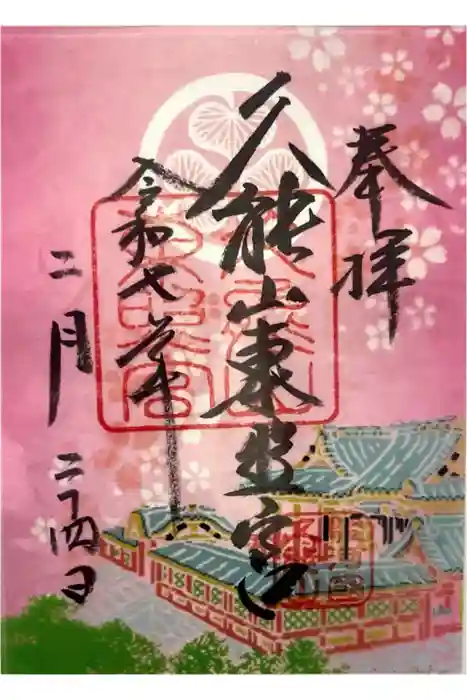 奉拝
久能山東照宮
令和七年
二月二十四日